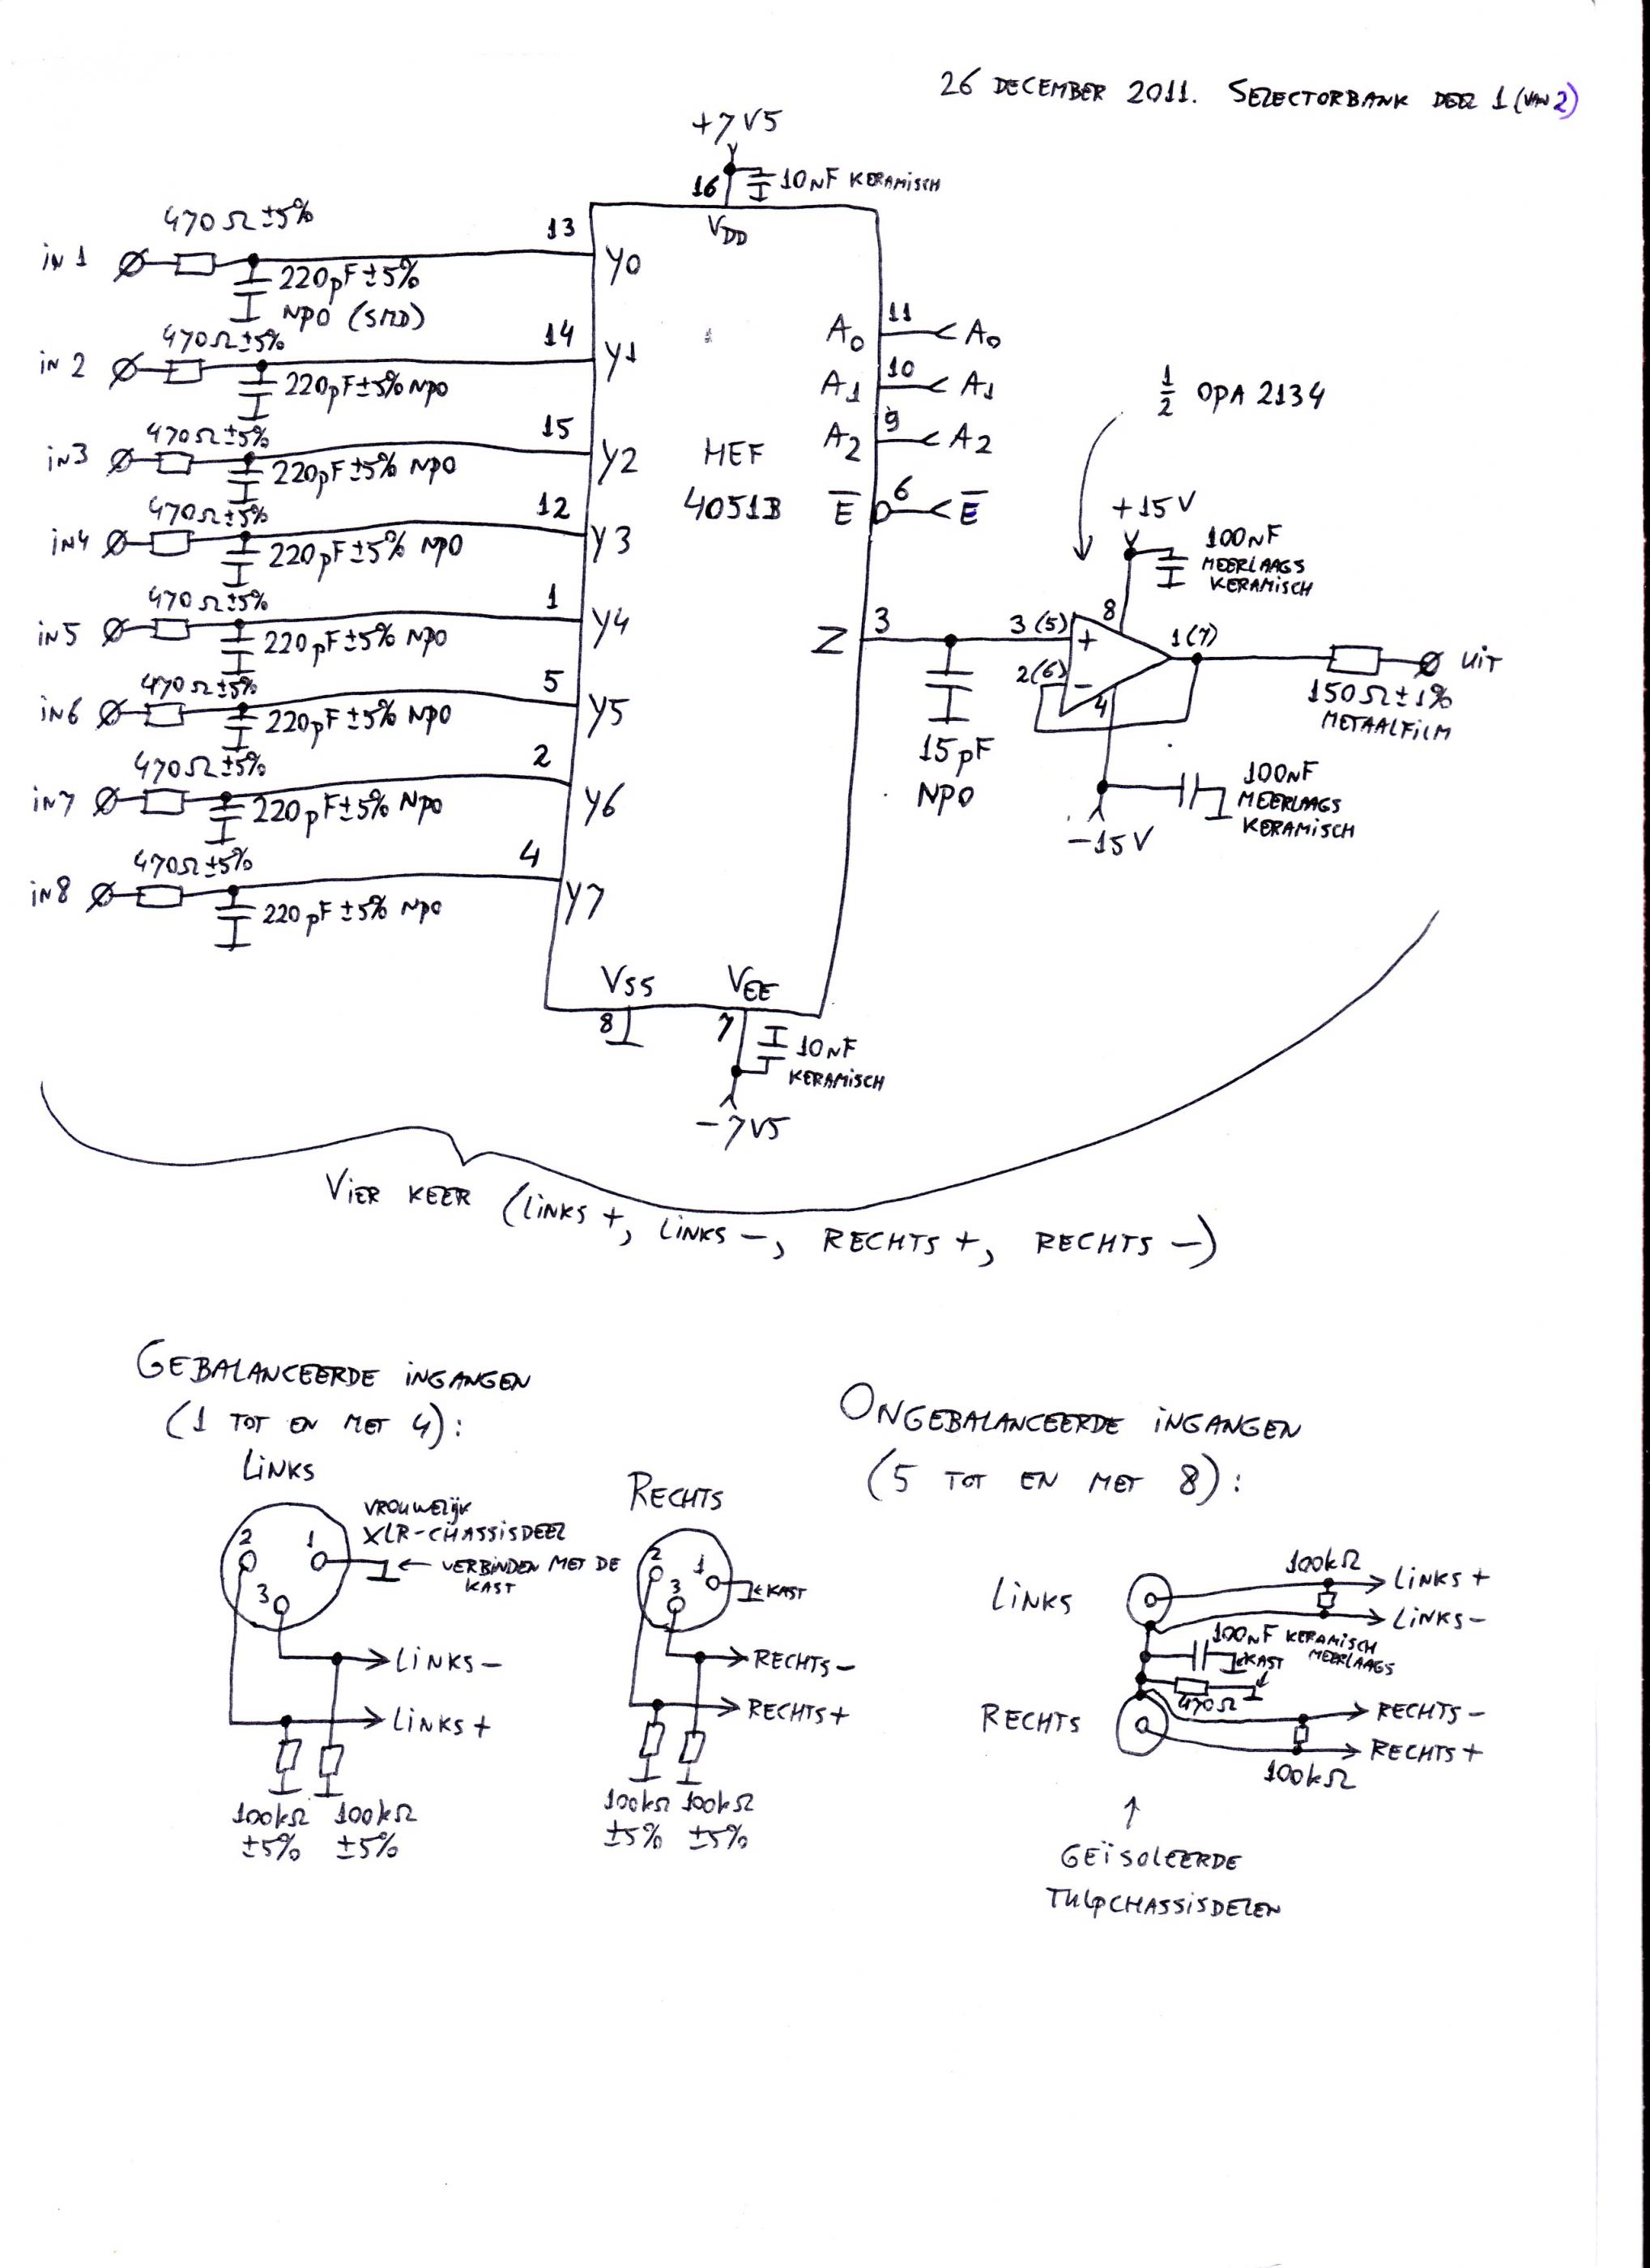 26 DECEMBER 2011. SELECTORBANK DEEL 1 (VAN 2)
+7V5
16
10NF KERAMISCH
VDD
470Ω±5%
13
iN 1
Y0
220pF±5%
NPO (SMD)
470Ω±5%
14
iN 2
Y1
220pF±5% NPO
470Ω±5%
15
iN3
Y2
220pF±5% NPO
470Ω±5%
12
iN4
Y3
220pF±5% NPO
470Ω±5%
1
iN5
Y4
220pF±5% NPO
470Ω±5%
5
iN6
Y5
220pF±5% NPO
470Ω±5%
2
iN7
Y6
220pF±5% NPO
470Ω±5%
4
iN8
Y7
220pF±5% NPO
HEF
4051B
A0 11 A0
A1 10 A1
A2 9 A2
E̅ 6 E̅
Z 3
15pF
NPO
1/2 OPA 2134
+15V
100NF
MEERLAAGS
KERAMISCH
8
3(5) +
2(6) -
1(7)
4
UiT
150Ω±1%
METAALFiLM
100NF
MEERLAAGS
KERAMISCH
-15V
VSS
8
VEE
7
10NF
KERAMiSCH
-7V5
ViER KEER (LiNKS +, LiNKS -, RECHTS +, RECHTS -)
GEBALANCEERDE iNGANGEN
(1 TOT EN MET 4):
LiNKS
2 1
3
VROUWELijK
XLR-CHASSISDEEL
← VERBiNDEN MET DE
KAST
LiNKS -
LiNKS +
100kΩ 100kΩ
±5% ±5%
RECHTS
2 1
3
KAST
RECHTS -
RECHTS +
100kΩ 100kΩ
±5% ±5%
ONGEBALANCEERDE iNGANGEN
(5 TOT EN MET 8):
LiNKS
100kΩ
LiNKS +
LiNKS -
100NF KERAMiSCH
MEERLAAGS
KAST
470Ω
RECHTS
RECHTS -
RECHTS +
100kΩ
↑
GEÏSOLEERDE
TULPCHASSiSDELEN